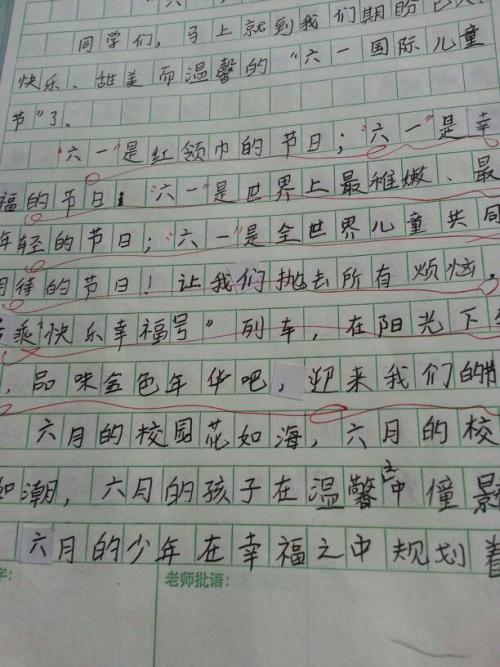 同学们，马上就到我们期盼已久
快乐、甜美而温馨的“六一国际儿童
节”了、
“六一”是红领巾的节日；“六一”是幸
福的节日！“六一”是世界上最稚嫩、最
年轻的节日；“六一”是全世界儿童共同
期待的节日！让我们抛去所有烦恼，
乘“快乐幸福号”列车，在阳光下
，品味金色年华吧，迎来我们的
六月的校园花如海，六月的校
如潮，六月的孩子在温馨之中憧憬
六月的少年在幸福之中规划着
字：
老师批语：